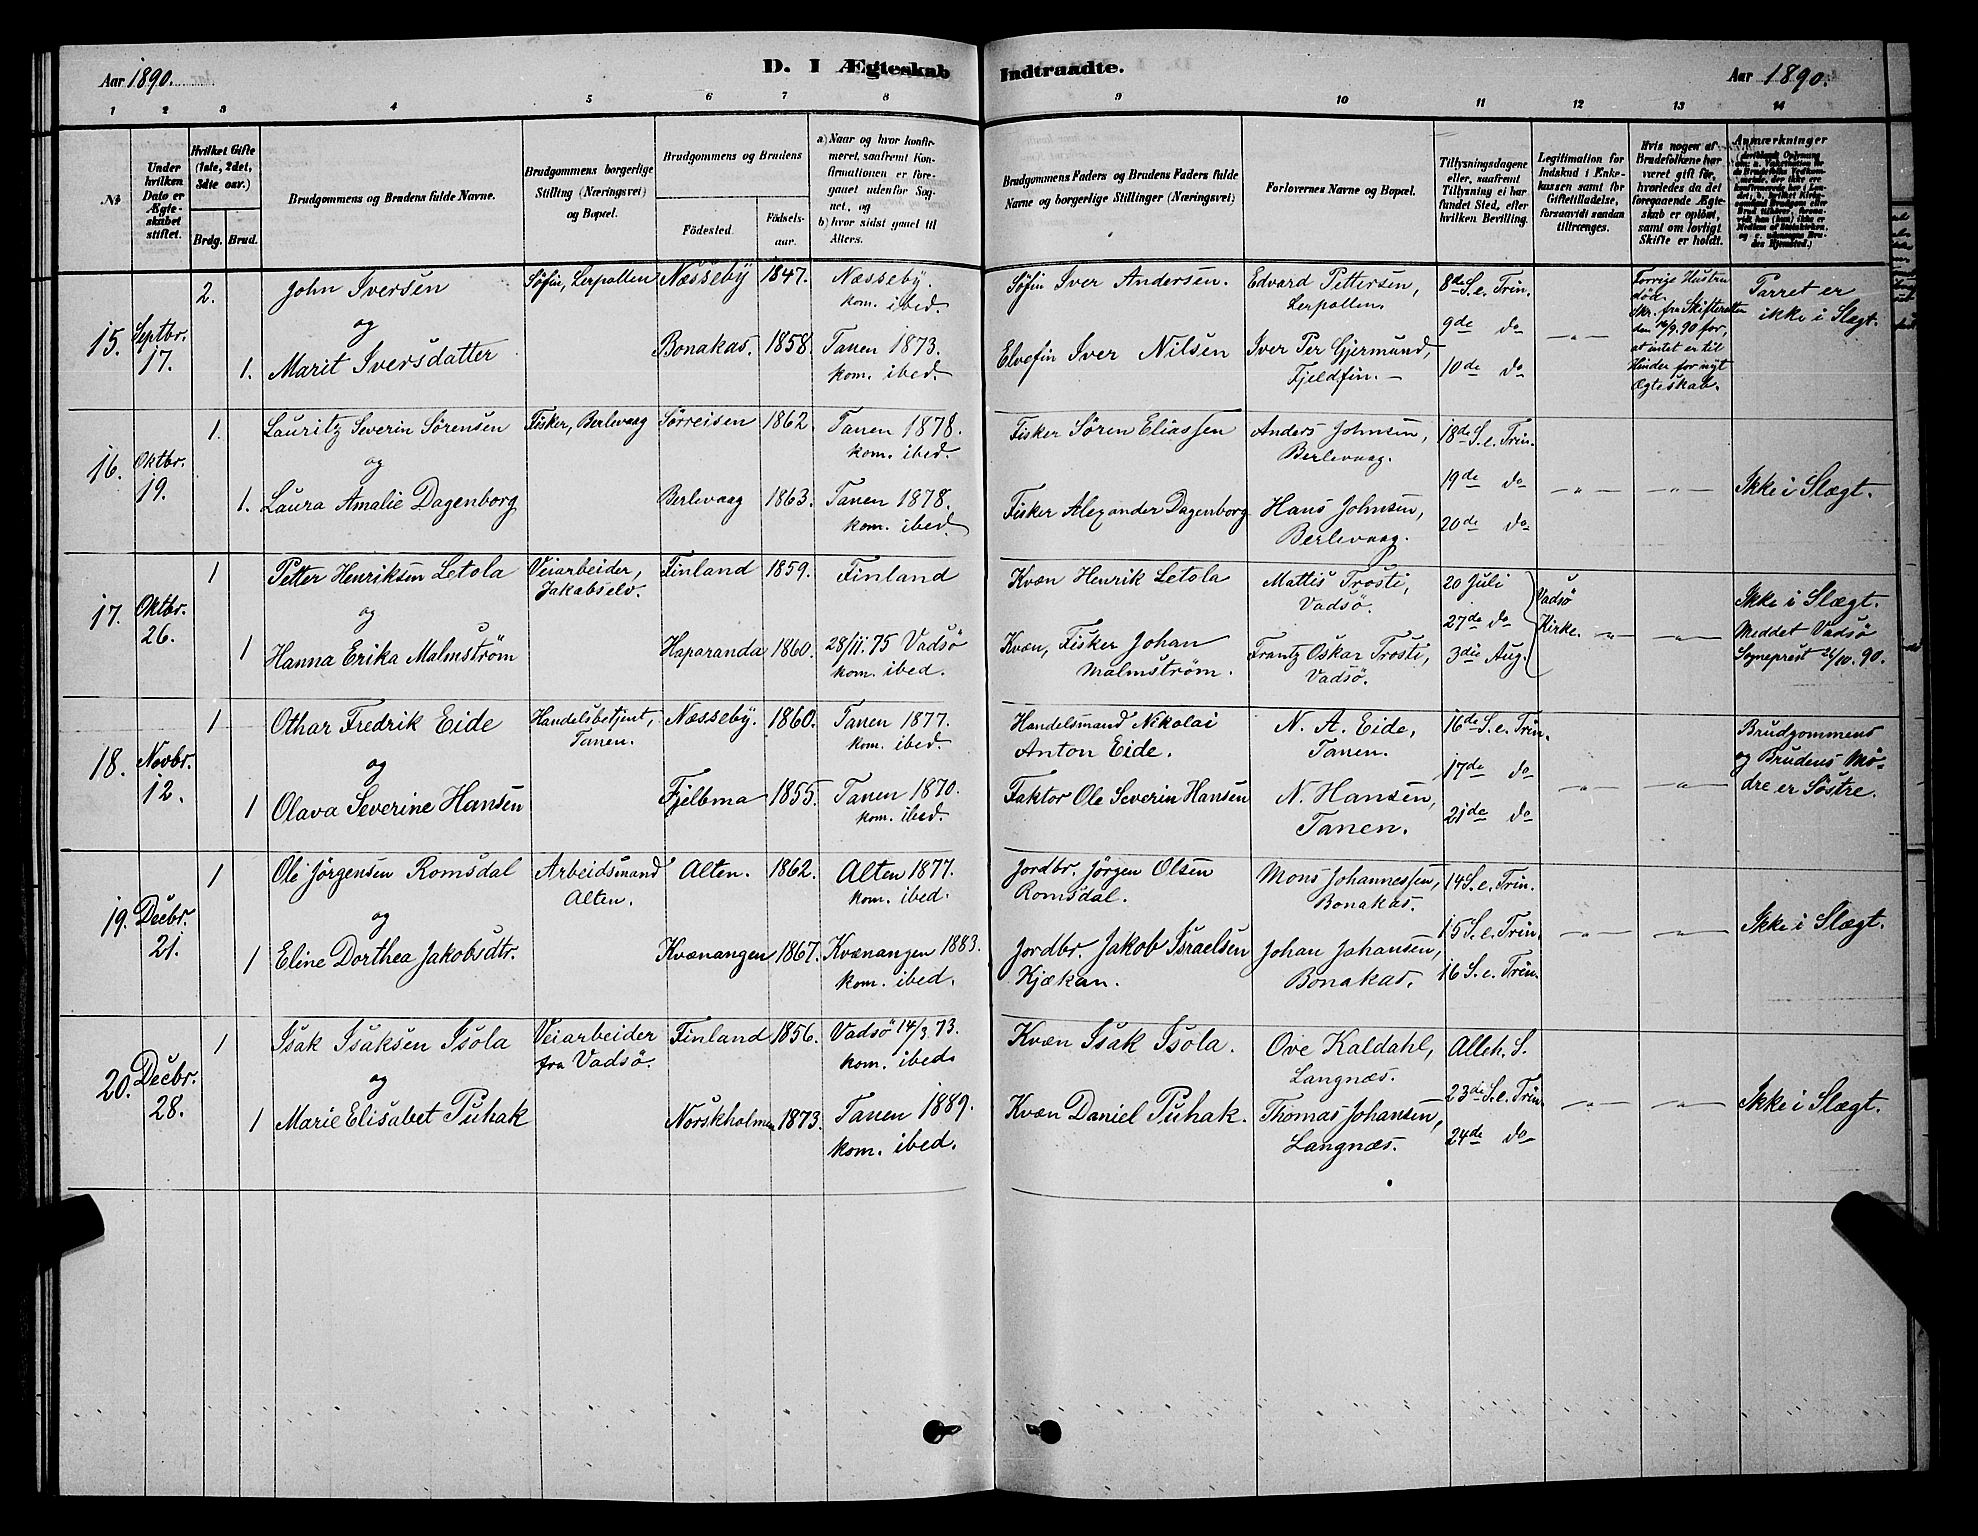 D. I Ægteskab Indtraadte.
Aar 1890.
Aar 1890.
1 2 3 4 5 6 7 8 9 10 11 12 13 14
№
Under hvilken Dato er Ægteskabet stiftet.
Hvilket Gifte (1ste, 2det, 3die osv.)
Brdg. Brud.
Brudgommens og Brudens fulde Navne.
Brudgommens borgerlige Stilling (Næringsvei) og Bopæl.
Brudgommens og Brudens
Födested.
Födselsaar.
a) Naar og hvor konfirmeret, saafremt Konfirmationen er foregaaet udenfor Sognet, og
b) hvor sidst gaaet til Alters.
Brudgommens Faders og Brudens Faders fulde Navne og borgerlige Stillinger (Næringsvei)
Forlovernes Navne og Bopæl.
Tillysningsdagene eller, saafremt Tillysning ei har fundet Sted, efter hvilken Bevilling.
Legitimation for Indskud i Enkekassen samt for Giftetilladelse, forsaavidt saadan tiltrænges.
Hvis nogen af Brudefolkene har været gift før, hvorledes da det foregaaende Ægteskab er oplöst, samt om lovligt Skifte er holdt.
Anmærkninger
15. Septbr. 17.
2. John Iversen
og
1. Marit Iversdatter
Söfin, Lerpollen
Næsseby 1847. Næsseby. kom. ibed.
Bonakas. 1858. Tanen 1873. kom. ibed.
Söfin Iver Andersen.
Elvefin Iver Nilsen
Edvard Pettersen, Lerpollen.
Iver Per Gjermund, Fjeldfin. –
8de S. e. Trin.
9de do
10de do
– " –
Forrige Hustru
död.
Skr. fra Skifteretten
den 16/9. 90 for,
at intet er til
Hinder for nyt
Ægteskab.
Parret er
ikke i Slægt.
16. Oktbr. 19.
1. Lauritz Severin Sørensen
og
1. Laura Amalie Dagenborg
Fisker, Berlevaag
Sørreisen 1862. Tanen 1878. kom. ibed.
Berlevaag 1863. Tanen 1878. kom. ibed.
Fisker Sören Eliassen
Fisker Alexander Dagenborg
Anders Johnsen, Berlevaag.
Hans Johnsen, Berlevaag.
18de S. e. Trin.
19de do
20de do
– " – – " –
Ikke i Slægt.
17. Oktbr. 26.
1 Petter Henriksen Letola
og
1 Hanna Erika Malmström
Veiarbeider, Jakobselv.
Finland 1859. Finland
Haparanda 1860. 28/11. 75 Vadsö kom. ibed.
Kvæn Henrik Letola
Kvæn, Fisker Johan Malmström.
Mattis Trosti, Vadsö.
Frantz Oskar Trosti, Vadsö.
20 Juli
27de do
3die Aug.
Vadsö Kirke.
– " – – " –
Ikke i Slægt.
Meddet Vadsö
Sogneprest 21/10. 90.
18. Novbr. 12.
1 Othar Fredrik Eide
og
1 Olava Severine Hansen
Handelsbetjent, Tanen.
Næsseby. 1860. Tanen 1877. kom. ibed.
Fjelbma 1855. Tanen 1870. kom. ibed.
Handelsmand Nikolai Anton Eide.
Faktor Ole Severin Hansen
N. A. Eide, Tanen.
N. Hansen, Tanen.
16de S. e. Trin.
17de do
21de do
– " – – " –
Brudgommens
og Brudens Mö-
dre er Söstre.
19. Decbr. 21.
1 Ole Jörgensen Romsdal
og
1 Eline Dorthea Jakobsdtr.
Arbeidsmand Alten.
Alten. 1862. Alten 1877. kom. ibed.
Kvænangen 1867. Kvænangen 1883. kom. ibed.
Jordbr. Jörgen Olsen Romsdal.
Jordbr. Jakob Israelsen Kjækan.
Mons Johannessen, Bonakas.
Johan Johansen, Bonakas.
14 S. e. Trin.
15 S. e. Trin.
16 S. e. Trin.
– " – – " –
Ikke i Slægt.
20. Decbr. 28.
1 Isak Isaksen Isola
og
1 Marie Elisabet Puhak
Veiarbeider fra Vadsö.
Finland 1856. Vadsö 14/9 73. kom. ibed.
Norskholmen 1873. Tanen 1889. kom. ibed.
Kvæn Isak Isola.
Kvæn Daniel Puhak.
Ove Kaldahl, Langnæs.
Thomas Johansen, Langnæs.
Alleh. S.
23de S. e. Trin.
24de do
– " – – " –
Ikke i Slægt.